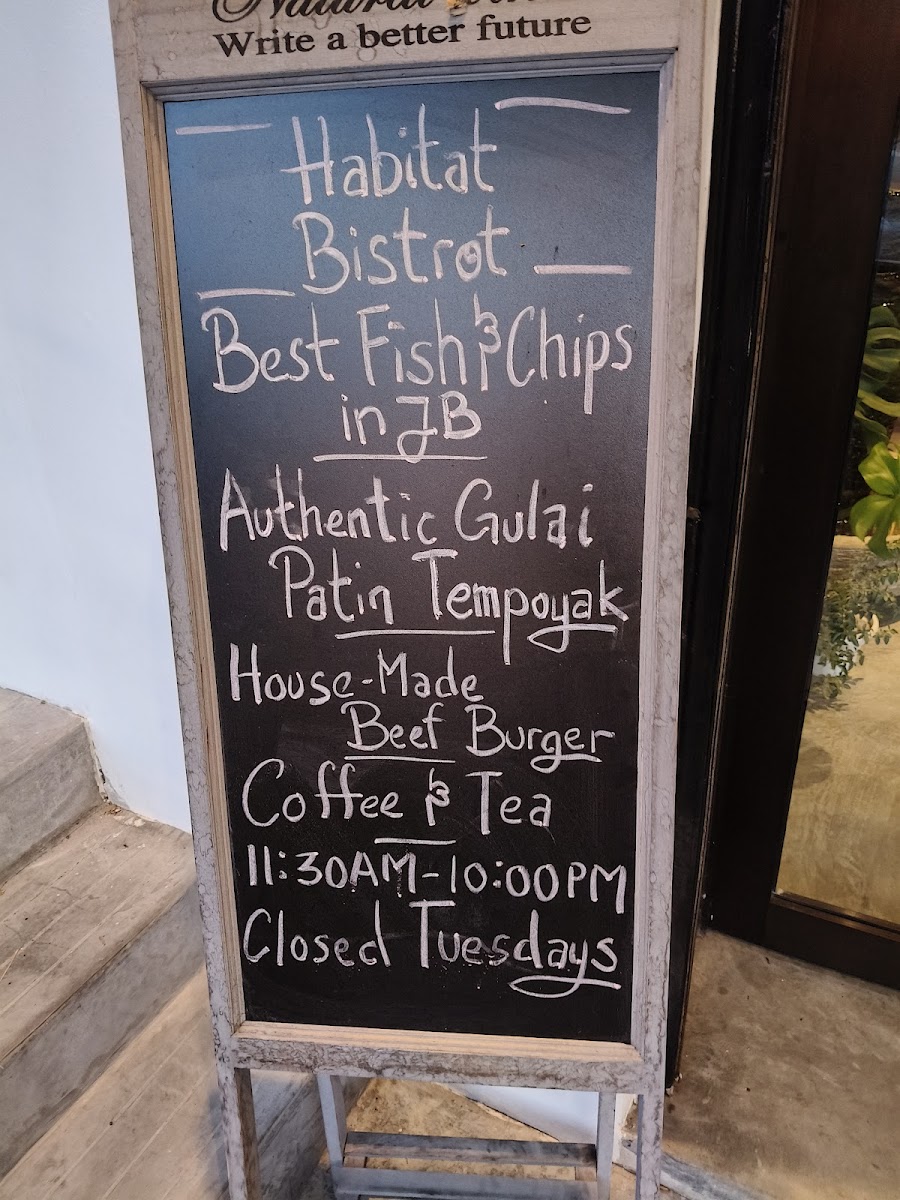 Natural
Write a better future
Habitat
Bistrot
Best Fish & Chips
in JB
Authentic Gulai
Patin Tempoyak
House-Made
Beef Burger
Coffee & Tea
11:30AM-10:00PM
Closed Tuesdays